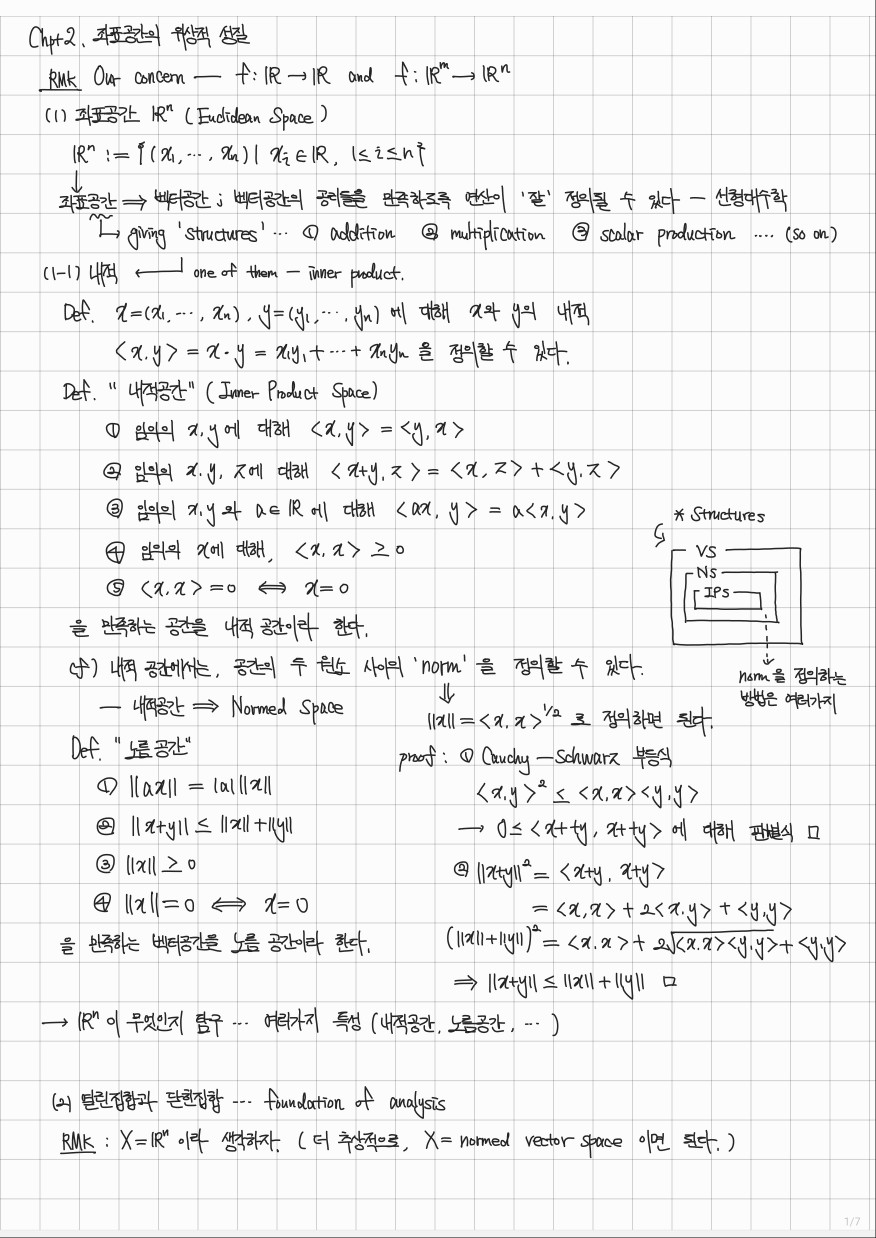 Chpt 2. 좌표공간의 위상적 성질
RMK Our concern — f: ℝ → ℝ and f: ℝᵐ → ℝⁿ
(1) 좌표공간 ℝⁿ (Euclidean Space)
ℝⁿ := {(x₁, ⋯, xₙ) | xᵢ ∈ ℝ, 1≤i≤n}
↓
좌표공간 ⇒ 벡터공간 ; 벡터공간의 공리들을 만족하도록 연산이 '잘' 정의될 수 있다 — 선형대수학
↳ giving 'structures' ⋯ ① addition ② multiplication ③ scalar production ⋯⋯ (so on)
(1-1) 내적 ← one of them — inner product.
Def. x=(x₁, ⋯, xₙ), y=(y₁, ⋯, yₙ) 에 대해 x와 y의 내적
<x.y> = x·y = x₁y₁+⋯+xₙyₙ 을 정의할 수 있다.
Def. "내적공간" (Inner Product Space)
① 임의의 x,y에 대해 <x,y> = <y,x>
② 임의의 x.y, z에 대해 <x+y, z> = <x, z> + <y, z>
③ 임의의 x,y와 a∈ℝ에 대해 <ax, y> = a<x.y>
④ 임의의 x에 대해, <x, x> ≥ 0
⑤ <x,x> = 0 ⟺ x=0
을 만족하는 공간을 내적 공간이라 한다.
* Structures
VS
NS
IPs
norm을 정의하는
방법은 여러가지
(cf) 내적 공간에서는, 공간의 두 원소 사이의 'norm'을 정의할 수 있다.
— 내적공간 ⇒ Normed Space
⇓
||x|| = <x.x>^{1/2} 로 정의하면 된다.
Def. "노름공간"
① ||ax|| = |a| ||x||
② ||x+y|| ≤ ||x||+||y||
③ ||x|| ≥ 0
④ ||x||=0 ⟺ x=0
을 만족하는 벡터공간을 노름 공간이라 한다.
proof : ① Cauchy — Schwarz 부등식
<x.y>² ≤ <x.x><y.y>
→ 0≤<x+ty, x+ty>에 대해 판별식 □
② ||x+y||² = <x+y, x+y>
= <x,x> + 2<x.y> + <y,y>
(||x||+||y||)² = <x.x> + 2√<x.x><y.y> + <y.y>
⇒ ||x+y|| ≤ ||x||+||y|| □
→ ℝⁿ이 무엇인지 탐구 ⋯ 여러가지 특성 (내적공간, 노름공간, ⋯)
(2) 열린집합과 닫힌집합 ⋯ foundation of analysis
RMK : X=ℝⁿ이라 생각하자. (더 추상적으로, X= normed vector space 이면 된다.)
1/7